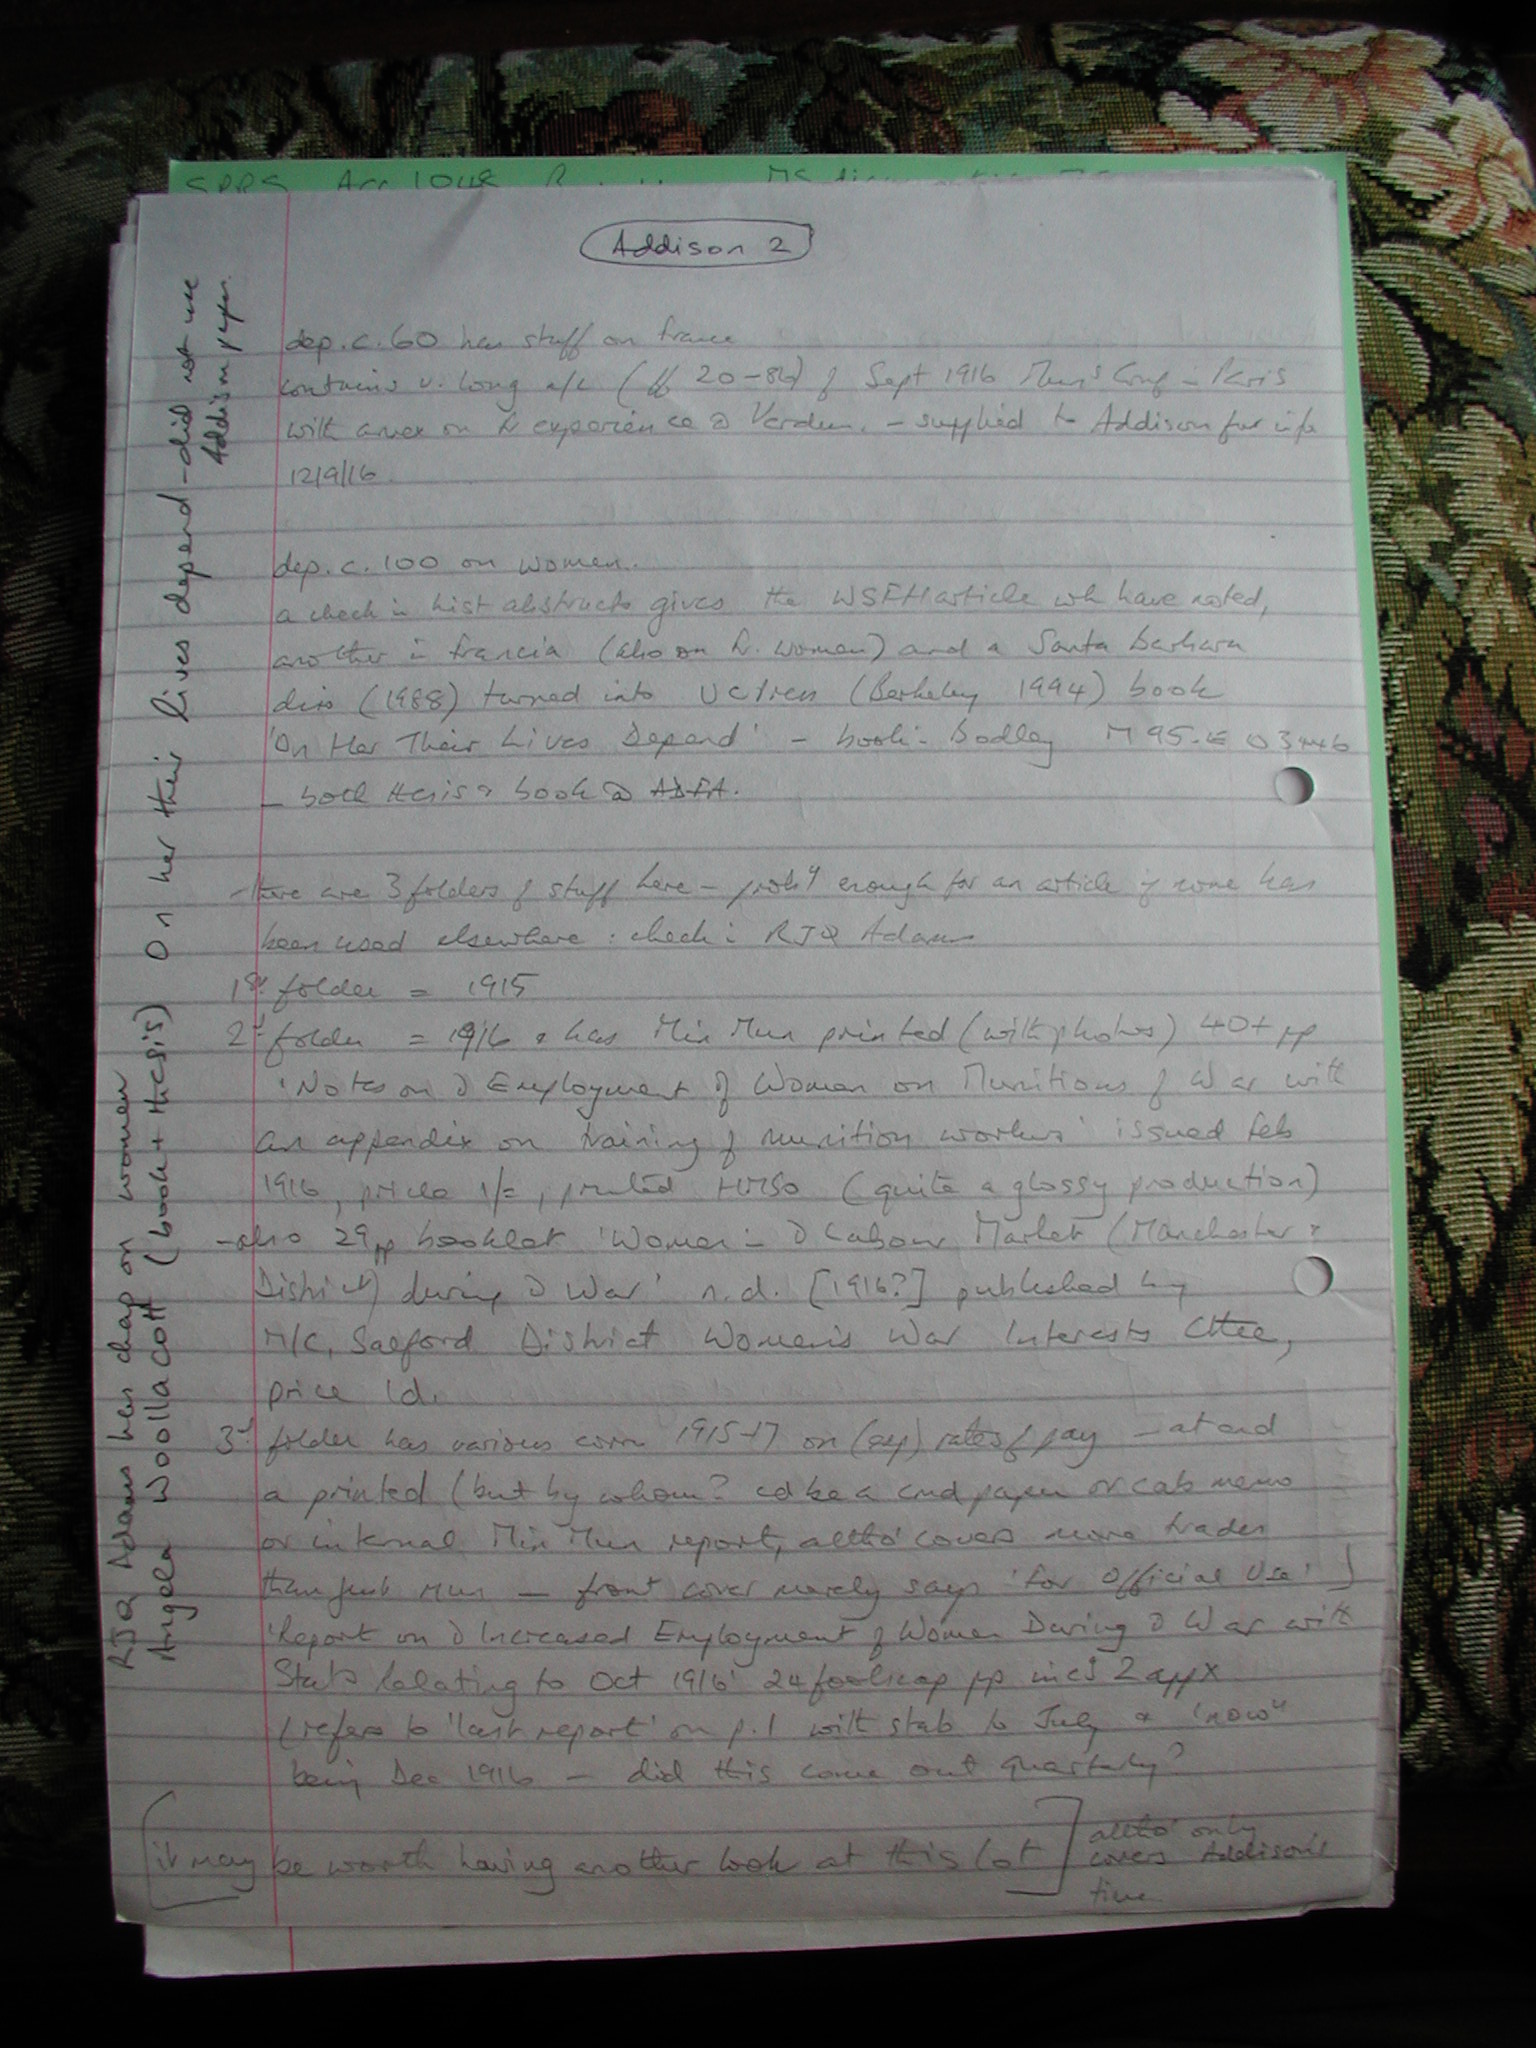 Addison 2
dep. c. 60 has stuff on France
contains v. long a/c (ff 20-86) of Sept 1916 Mun's Conf Paris
with annex on Fr experience @ Verdun. - supplied to Addison for info
12/9/16
dep. c. 100 on women.
a check in hist abstracts gives the WSFH article wh have noted,
another in Francia (also on Fr. women) and a Santa Barbara
diss (1988) turned into UC Press (Berkeley 1994) book
'On Her Their Lives Depend' - book: Bodley M95.E 03446
- both thesis & book @ ADFA.
there are 3 folders of stuff here - prob'y enough for an article if none has
been used elsewhere: check: RJQ Adams
1st folder = 1915
2d folder = 1916 & has Min Mun printed (with photos) 40+ pp
'Notes on Employment of Women on Munitions of War with
an appendix on training of munition workers' issued Feb
1916, price 1/=, printed HMSO (quite a glossy production)
-also 29pp booklet 'Women Labour Market (Manchester &
District) during War' n.d. [1916?] published by
M/C, Salford District Women's War Interests Cttee,
price 1d.
3d folder has various corr 1915-17 on (esp) rates of pay - at end
a printed (but by whom? cd be a cmd paper or cab memo
or internal Min Mun report, altho' covers more trades
than just mun - front cover merely says 'For Official Use')
'Report on Increased Employment of Women During War with
Stats Relating to Oct 1916' 24 foolscap pp incl 2 appx
(refers to 'last report' on p.1 with stats to July & 'now'
being Dec 1916 - did this come out quarterly?
[it may be worth having another look at this lot]
altho' only
covers Addison's
time
RJQ Adams has chap on women
Angela Woollacott (book + thesis) On her their lives depend - did not use
Addison papers.